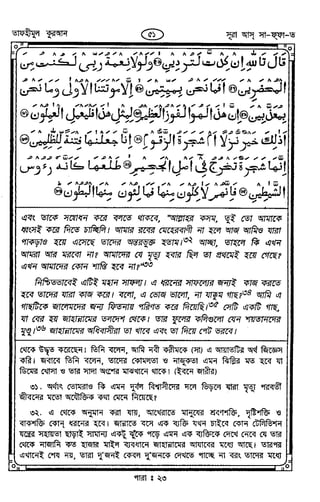 তাফহীমুল কুরআন
৫১
সূরা আস্ সা-ফ্ফা-ত
قَالَ تَاللَّهِ إِنْ كِدْتَّ لَتُرْدِينِ ۞ وَلَوْلَا نِعْمَةُ رَبِّي لَكُنْتُ مِنَ
الْمُحْضَرِينَ ۞ أَفَمَا نَحْنُ بِمَيِّتِينَ ۞ إِلَّا مَوْتَتَنَا الْأُولَىٰ وَمَا نَحْنُ
بِمُعَذَّبِينَ ۞ إِنَّ هَٰذَا لَهُوَ الْفَوْزُ الْعَظِيمُ ۞ لِمِثْلِ هَٰذَا فَلْيَعْمَلِ الْعَٰمِلُونَ ۞
أَذَٰلِكَ خَيْرٌ نُّزُلًا أَمْ شَجَرَةُ الزَّقُّومِ ۞ إِنَّا جَعَلْنَٰهَا فِتْنَةً لِّلظَّٰلِمِينَ ۞
إِنَّهَا شَجَرَةٌ تَخْرُجُ فِي أَصْلِ الْجَحِيمِ ۞ طَلْعُهَا كَأَنَّهُ رُءُوسُ
الشَّيَٰطِينِ ۞ فَإِنَّهُمْ لَآكِلُونَ مِنْهَا فَمَالِئُونَ مِنْهَا الْبُطُونَ ۞
এবং তাকে সম্বোধন করে বলতে থাকবে, "আল্লাহর কসম, তুই তো আমাকে
ধ্বংসই করে দিতে চাচ্ছিলি। আমার রবের মেহেরবাণী না হলে আজ আমিও যারা
পাকড়াও হয়ে এসেছে তাদের অন্তরভুক্ত হতাম।৩১ আচ্ছা, তাহলে কি এখন
আমরা আর মরবো না? আমাদের যে মৃত্যু হবার ছিল তা প্রথমেই হয়ে গেছে?
এখন আমাদের কোন শাস্তি হবে না?"৩৩
নিশ্চিতভাবেই এটিই মহান সাফল্য। এ ধরনের সাফল্যের জন্যই কাজ করতে
হবে তাদের যারা কাজ করে। বলো, এ ভোজ ভালো, না যাক্কুম গাছ?৩৪ আমি এ
গাছটিকে জালেমদের জন্য ফিতনায় পরিণত করে দিয়েছি।৩৫ সেটি একটি গাছ,
যা বের হয় জাহান্নামের তলদেশ থেকে। তার ফুলের কলিগুলো যেন শয়তানদের
মুণ্ডু।৩৬ জাহান্নামের অধিবাসীরা তা খাবে এবং তা দিয়ে পেট ভরবে।
থেকে উদ্ধৃত করেছেন। তিনি বলেন, আমি নবী করীমকে (সা) এ আয়াতটির অর্থ জিজ্ঞেস
করি। জবাবে তিনি বলেন, তাদের কোমলতা ও নাজুকতা এমন ঝিল্লির মত হবে যা
ডিমের খোসা ও তার সাদা অংশের মাঝখানে থাকে। (ইবনে জারীর)
৩১. অর্থাৎ তোমরাও কি এমন দুর্বল বিশ্বাসীদের দলে ভিড়লে যারা মৃত্যু পরবর্তী
জীবনের মতো অযৌক্তিক কথা মেনে নিয়েছে?
৩২. এ থেকে অনুমান করা যায়, আখেরাতে মানুষের শ্রবণশক্তি, দৃষ্টিশক্তি ও
বাকশক্তি কোন্ ধরনের হবে। জান্নাতে বসে এক ব্যক্তি যখন চাইবে কোন টেলিভিশন
যন্ত্রের সহায়তা ছাড়াই সামান্য একটু ঝুঁকে পড়ে এমন এক ব্যক্তিকে দেখে নেবে যে তার
থেকে নাজানি কত হাজার মাইল ব্যবধানে জাহান্নামের আযাবের মধ্যে আছে। তারপর
এখানেই শেষ নয়, তারা দু'জনই কেবল দু'জনকে দেখতে পাচ্ছে না বরং তাদের মধ্যে
পারা : ২৩